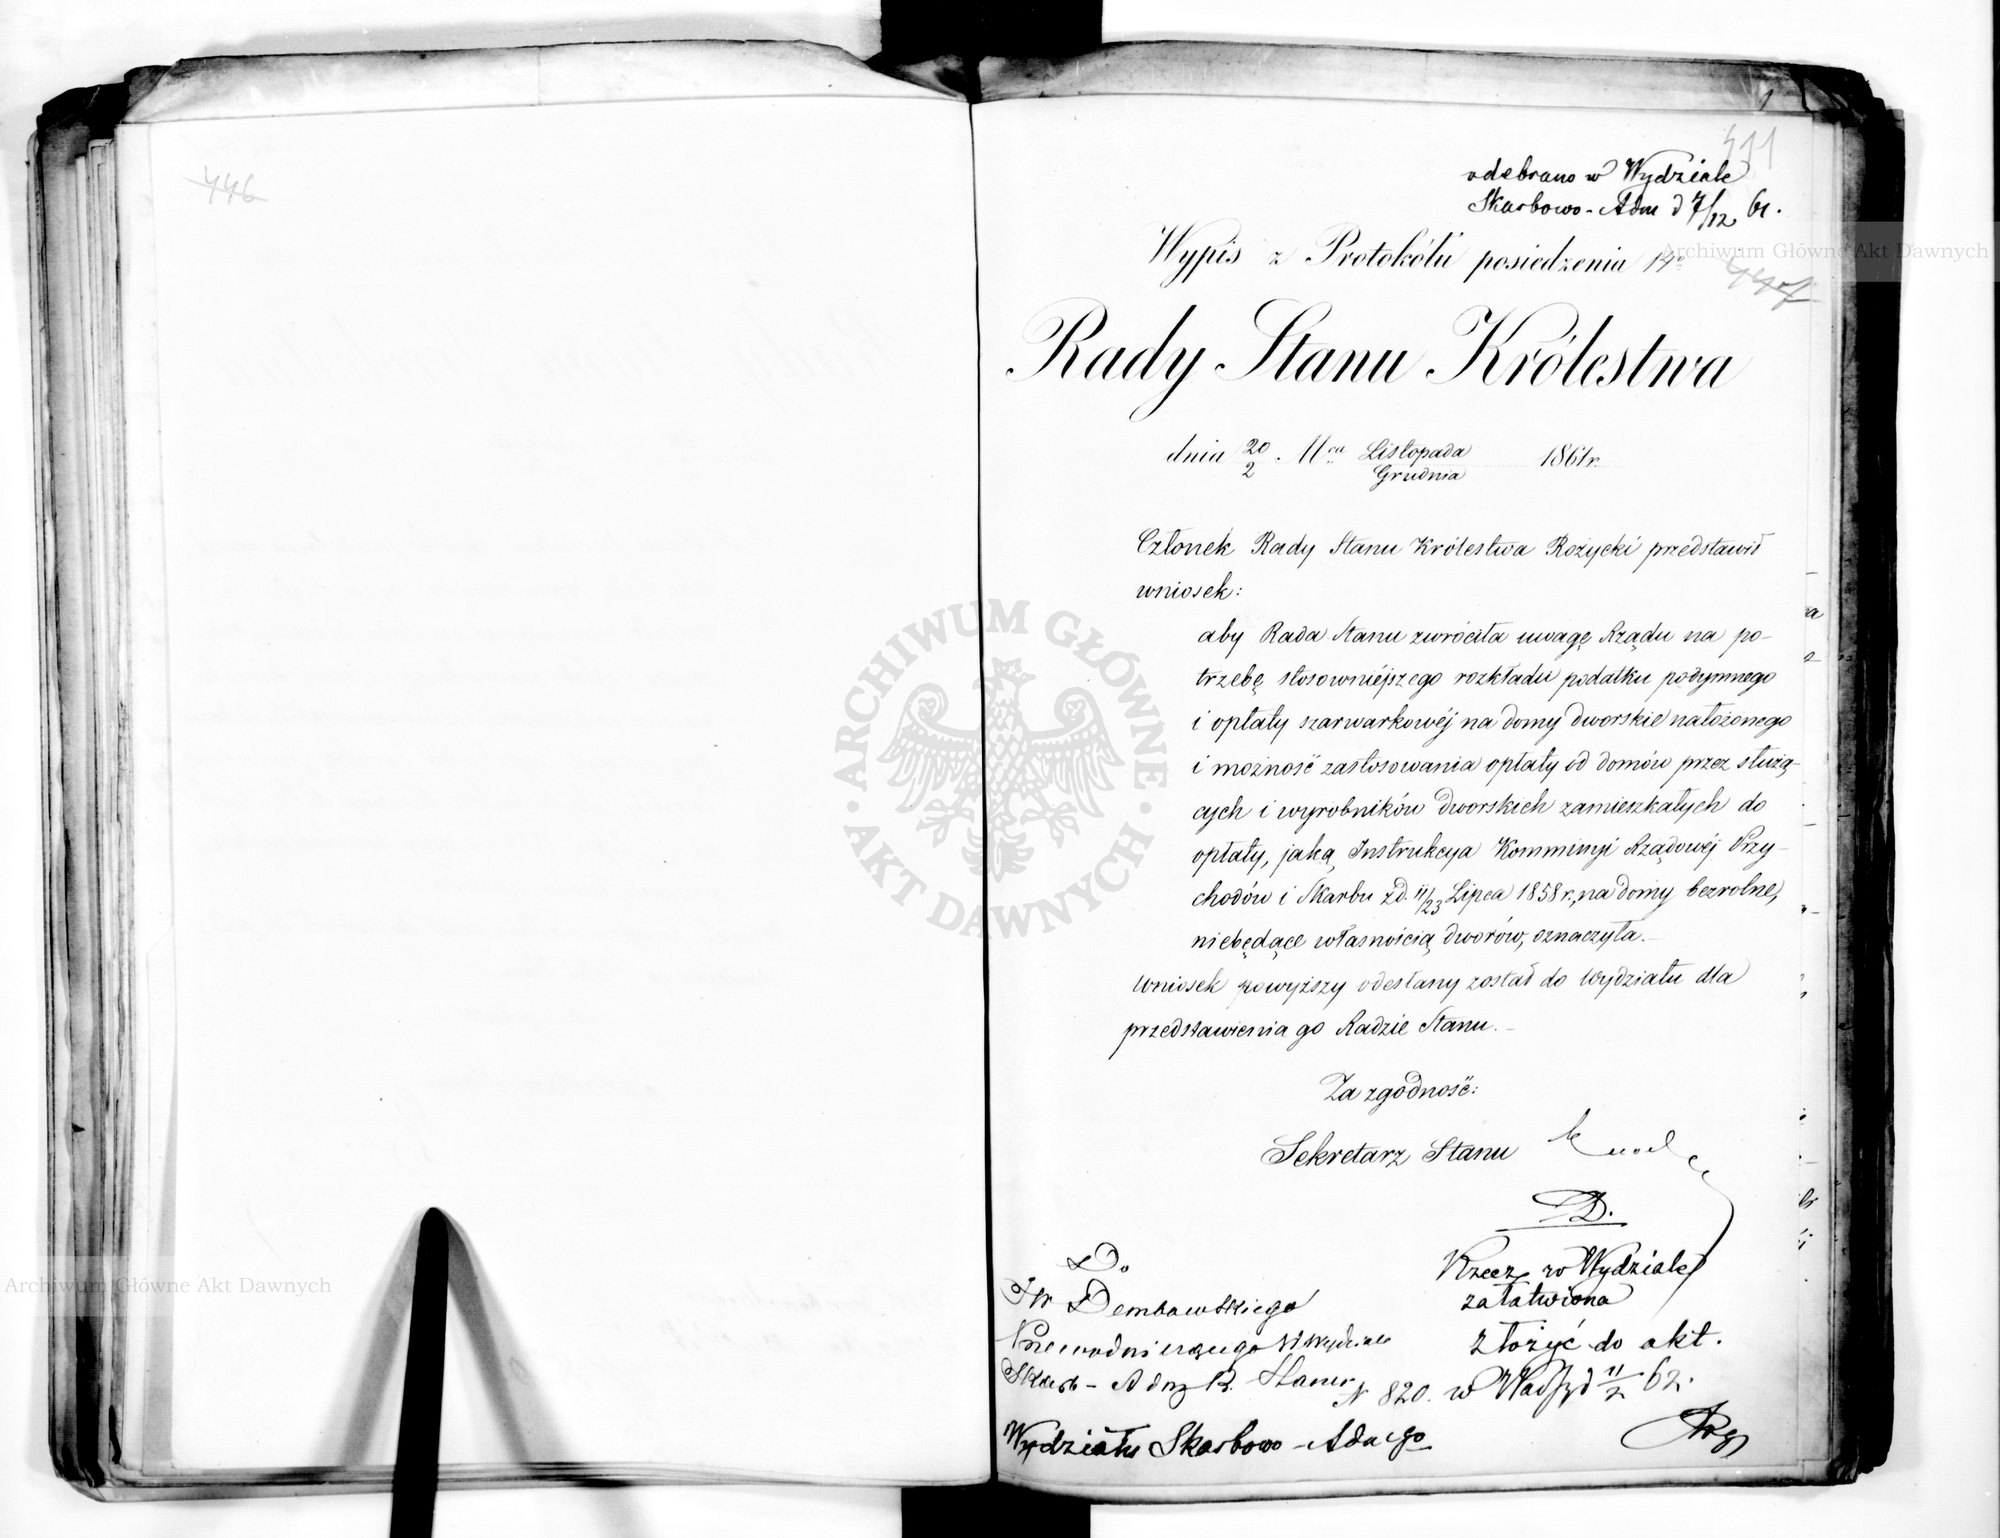 446
1
411
odebrano w Wydziale
Skarbowo-Adm d 7/12 61.
Wypis z Protokółu posiedzenia 14º
447
Rady Stanu Królestwa
dnia 20/2 Mca Listopada/Grudnia 1861 r.
Członek Rady Stanu Królestwa Rożycki przedstawił
wniosek:
aby Rada Stanu zwróciła uwagę Rządu na po-
trzebę stosowniéjszego rozkładu podatku podymnego
i opłaty szarwarkowéj na domy dworskie nałożonego
i możność zastosowania opłaty od domów przez służą-
cych i wyrobników dworskich zamieszkałych do
opłaty, jaką Instrukcya Kommissyi Rządowéj Przy-
chodów i Skarbu z d. 11/23 Lipca 1858 r., na domy bezrolne,
niebędące własnością dworów, oznaczyła.—
Wniosek powyższy odesłany został do Wydziału dla
przedstawienia go Radzie Stanu.—
Za zgodność:
Sekretarz Stanu
D.
Do
JW Dembowskiego
Przewodniczącego W Wydziale
Skarb-Adm R. Stanu
N 820.
Wydziału Skarbowo-Adm=go
Rzecz w Wydziale
załatwiona
złożyć do akt.
w Warsz d 11/2 62.
ARCHIWUM GŁÓWNE
AKT DAWNYCH
Archiwum Główne Akt Dawnych
Archiwum Główne Akt Dawnych